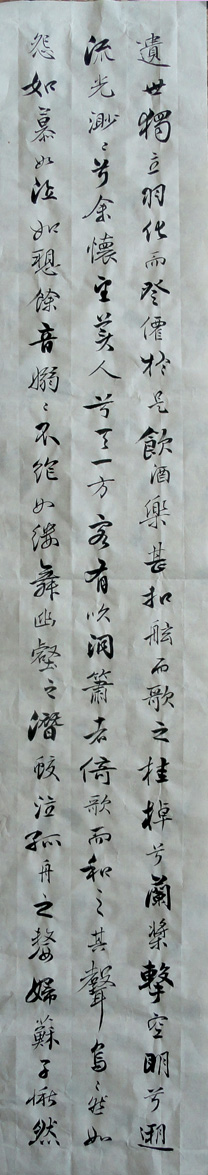 遺世獨立羽化而登僊於是飲酒樂甚扣舷而歌之桂棹兮蘭槳擊空明兮遡
流光渺〻兮余懷望美人兮天一方客有吹洞簫者倚歌而和之其聲烏〻然如
怨如慕如泣如愬餘音嫋〻不絶如縷舞幽壑之潛蛟泣孤舟之嫠婦蘇子愀然